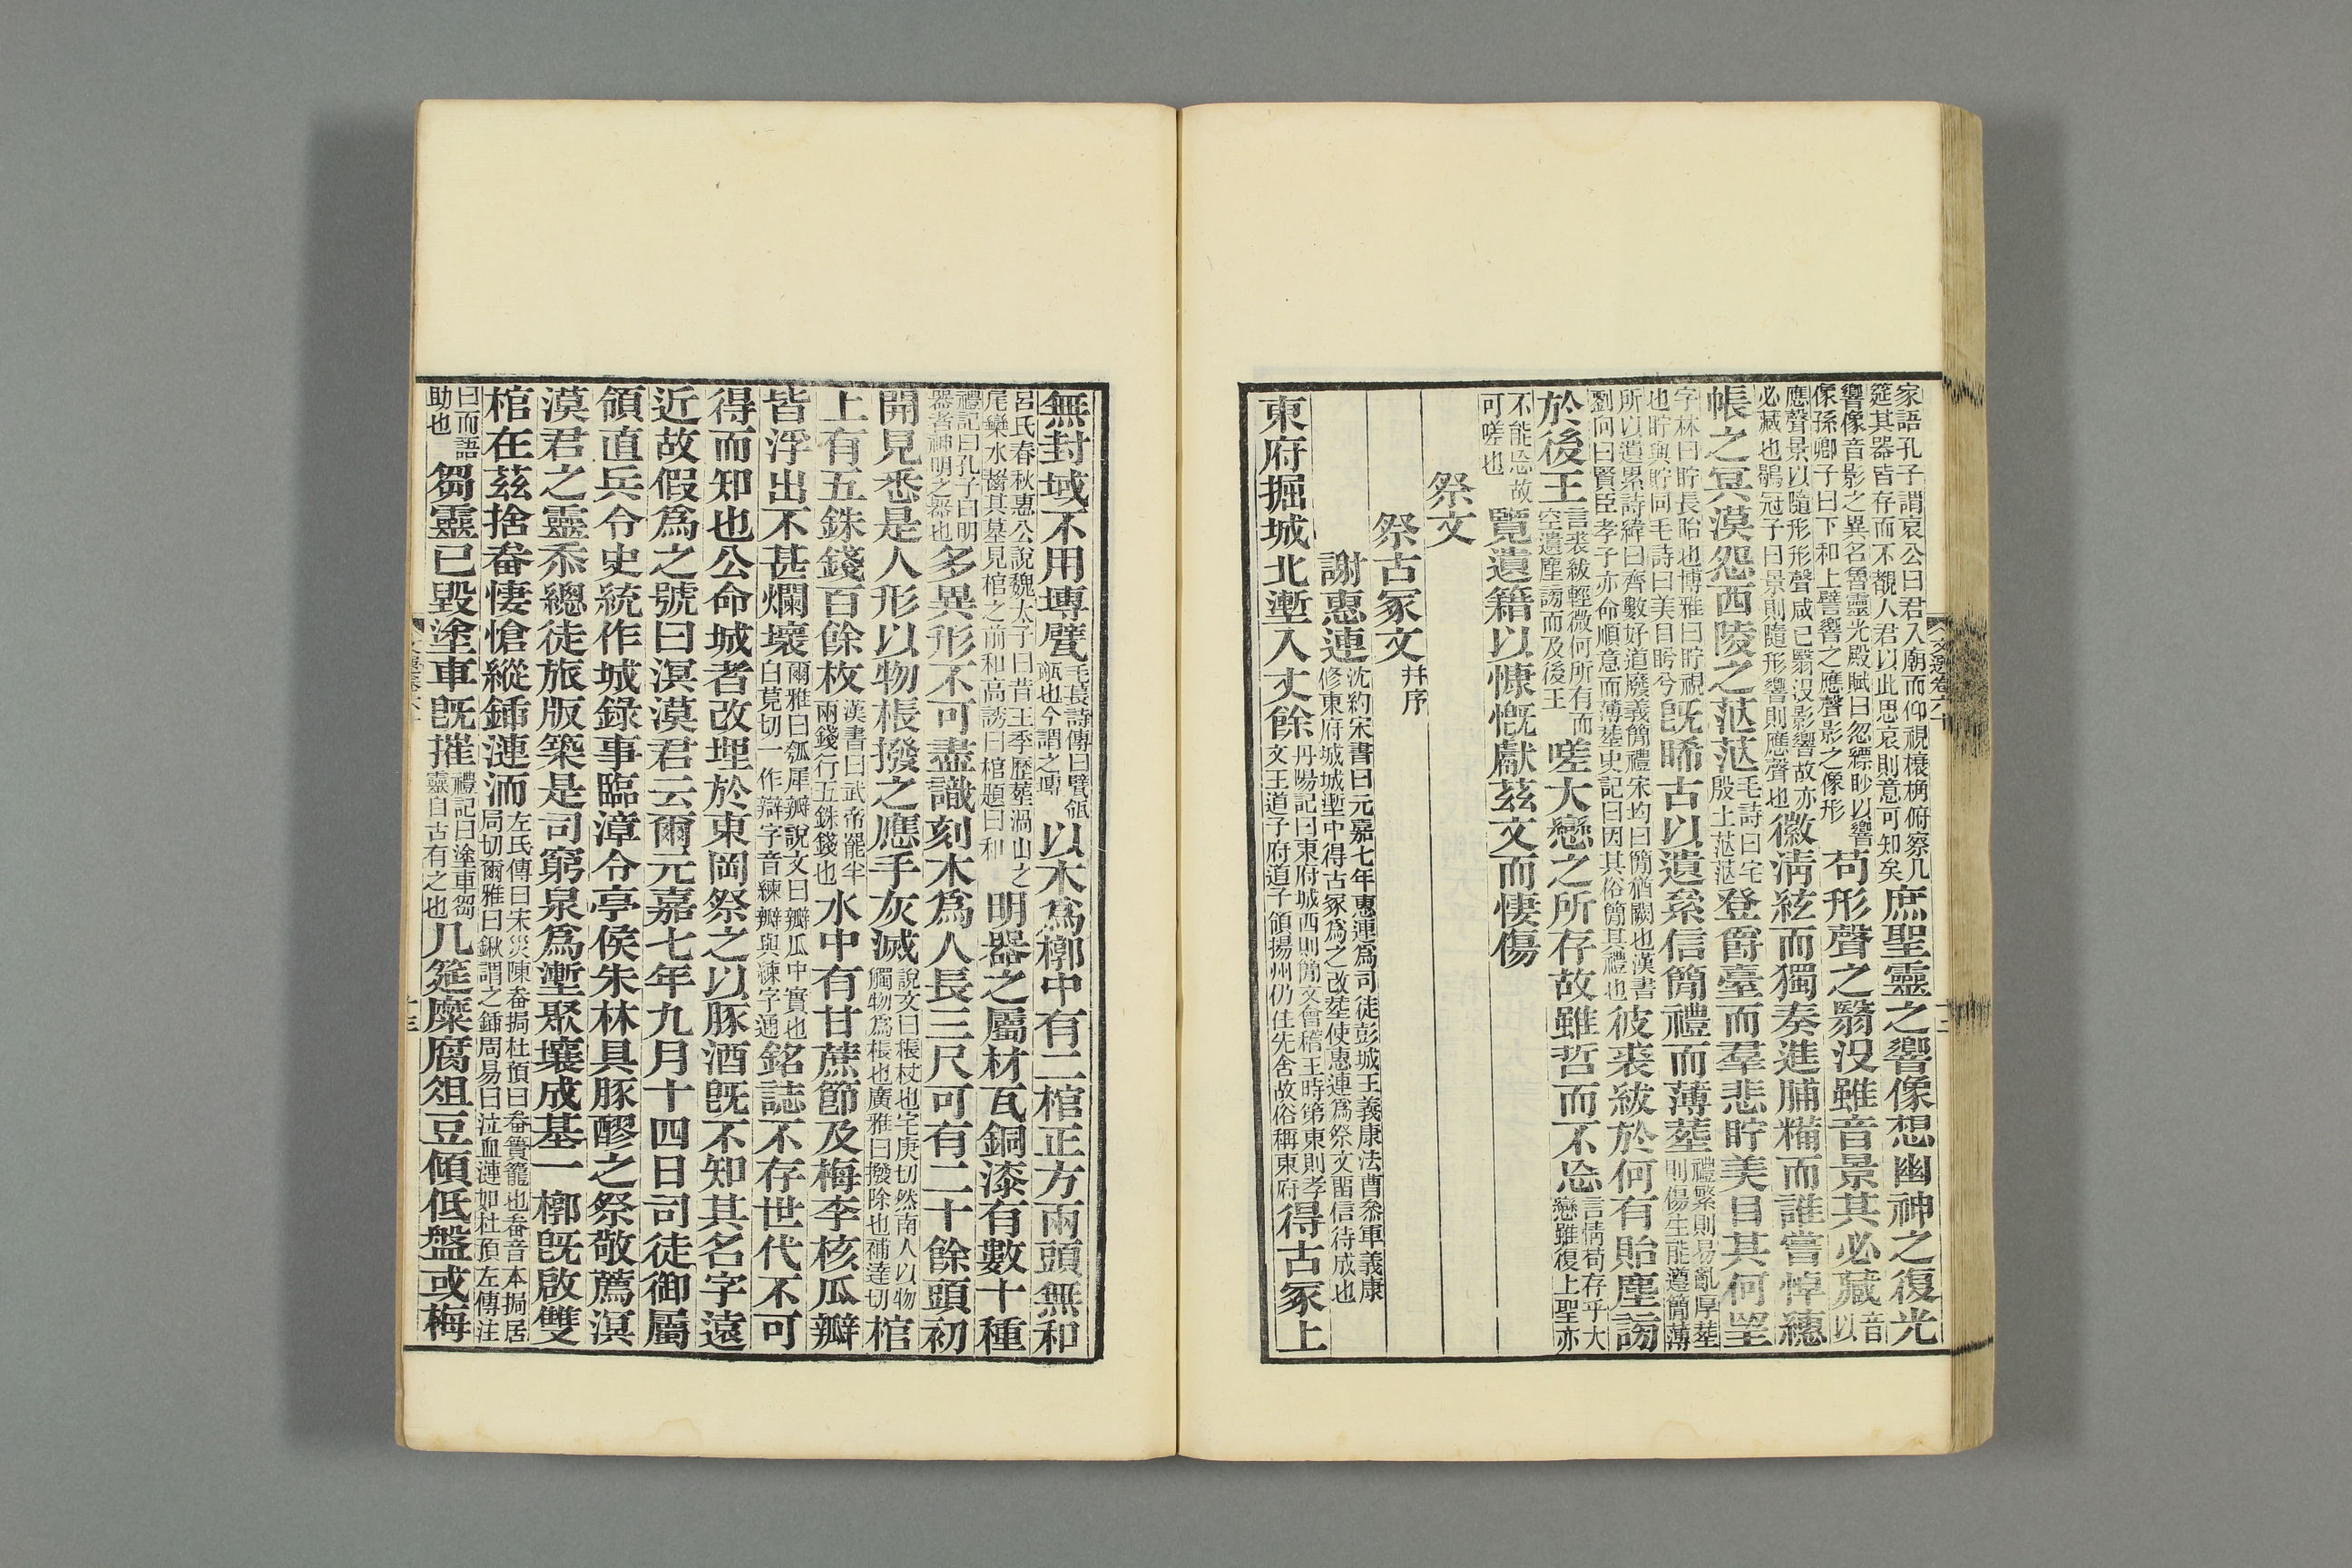 家語孔子謂哀公曰君入廟而仰視榱桷俯察几筵其器皆存而不覩人君以此思哀則意可知矣庶聖靈之響像想幽神之復光
響像音影之異名魯靈光殿賦曰忽縹眇以響像孫卿子曰下和上譬響之應聲影之像形苟形聲之翳没雖音景其必藏音以
應聲景以隨形形聲咸已翳没影響故亦必藏也鶡冠子曰景則隨形響則應聲也徽清絃而獨奏進脯糒而誰嘗悼繐
帳之冥漠怨西陵之茫茫毛詩曰宅殷土茫茫登爵臺而羣悲貯美目其何望
字林曰貯長眙也博雅曰貯視也貯與貯同毛詩曰美目盻兮既睎古以遺累信簡禮而薄葬禮繁則易亂厚葬則傷生能遵簡薄
所以遺累詩緯曰齊數好道廢義簡禮宋均曰簡猶闕也漢書劉向曰賢臣孝子亦命順意而薄葬史記曰因其俗簡其禮也彼裘紱於何有貽塵謗
於後王言裘紱輕微何所有而空遺塵謗而及後王嗟大戀之所存故雖哲而不忘言情苟存乎大戀雖復上聖亦
不能忘故可嗟也覽遺籍以慷慨獻茲文而悽傷
祭文
祭古冢文并序
謝惠連沈約宋書曰元嘉七年惠連爲司徒彭城王義康法曹叅軍義康修東府城城塹中得古冢爲之改葬使惠連爲祭文畱信待成也
東府掘城北塹入丈餘丹陽記曰東府城西則簡文會稽王時第東則孝文王道子府道子領揚州仍住先舍故俗稱東府得古冢上
無封域不用塼甓毛萇詩傳曰甓瓴甋也今謂之塼以木爲槨中有二棺正方兩頭無和
呂氏春秋惠公說魏太子曰昔王季歷葬渦山之尾欒水齧其墓見棺之前和高誘曰棺題曰和明器之屬材瓦銅漆有數十種
禮記曰孔子曰明器者神明之器也多異形不可盡識刻木爲人長三尺可有二十餘頭初
開見悉是人形以物棖撥之應手灰滅說文曰棖杖也宅庚切然南人以物觸物爲棖也廣雅曰撥除也補達切棺
上有五銖錢百餘枚漢書曰武帝罷半兩錢行五銖錢也水中有甘蔗節及梅李核瓜瓣
皆浮出不甚爛壞爾雅曰瓠犀瓣說文曰瓣瓜中實也白莧切一作辯字音練瓣與練字通銘誌不存世代不可
得而知也公命城者改埋於東岡祭之以豚酒旣不知其名字遠
近故假爲之號曰溟漠君云爾元嘉七年九月十四日司徒御屬
領直兵令史統作城錄事臨漳令亭侯朱林具豚醪之祭敬薦溟
漠君之靈忝總徒旅版築是司窮泉爲塹聚壤成基一槨旣啟雙
棺在茲捨畚悽愴縱鍤漣洏左氏傳曰宋災陳畚挶杜預曰畚簣籠也畚音本挶居局切爾雅曰鍬謂之鍤周易曰泣血漣如杜預左傳注
曰而語助也芻靈已毀塗車旣摧禮記曰塗車芻靈自古有之也几筵糜腐俎豆傾低盤或梅